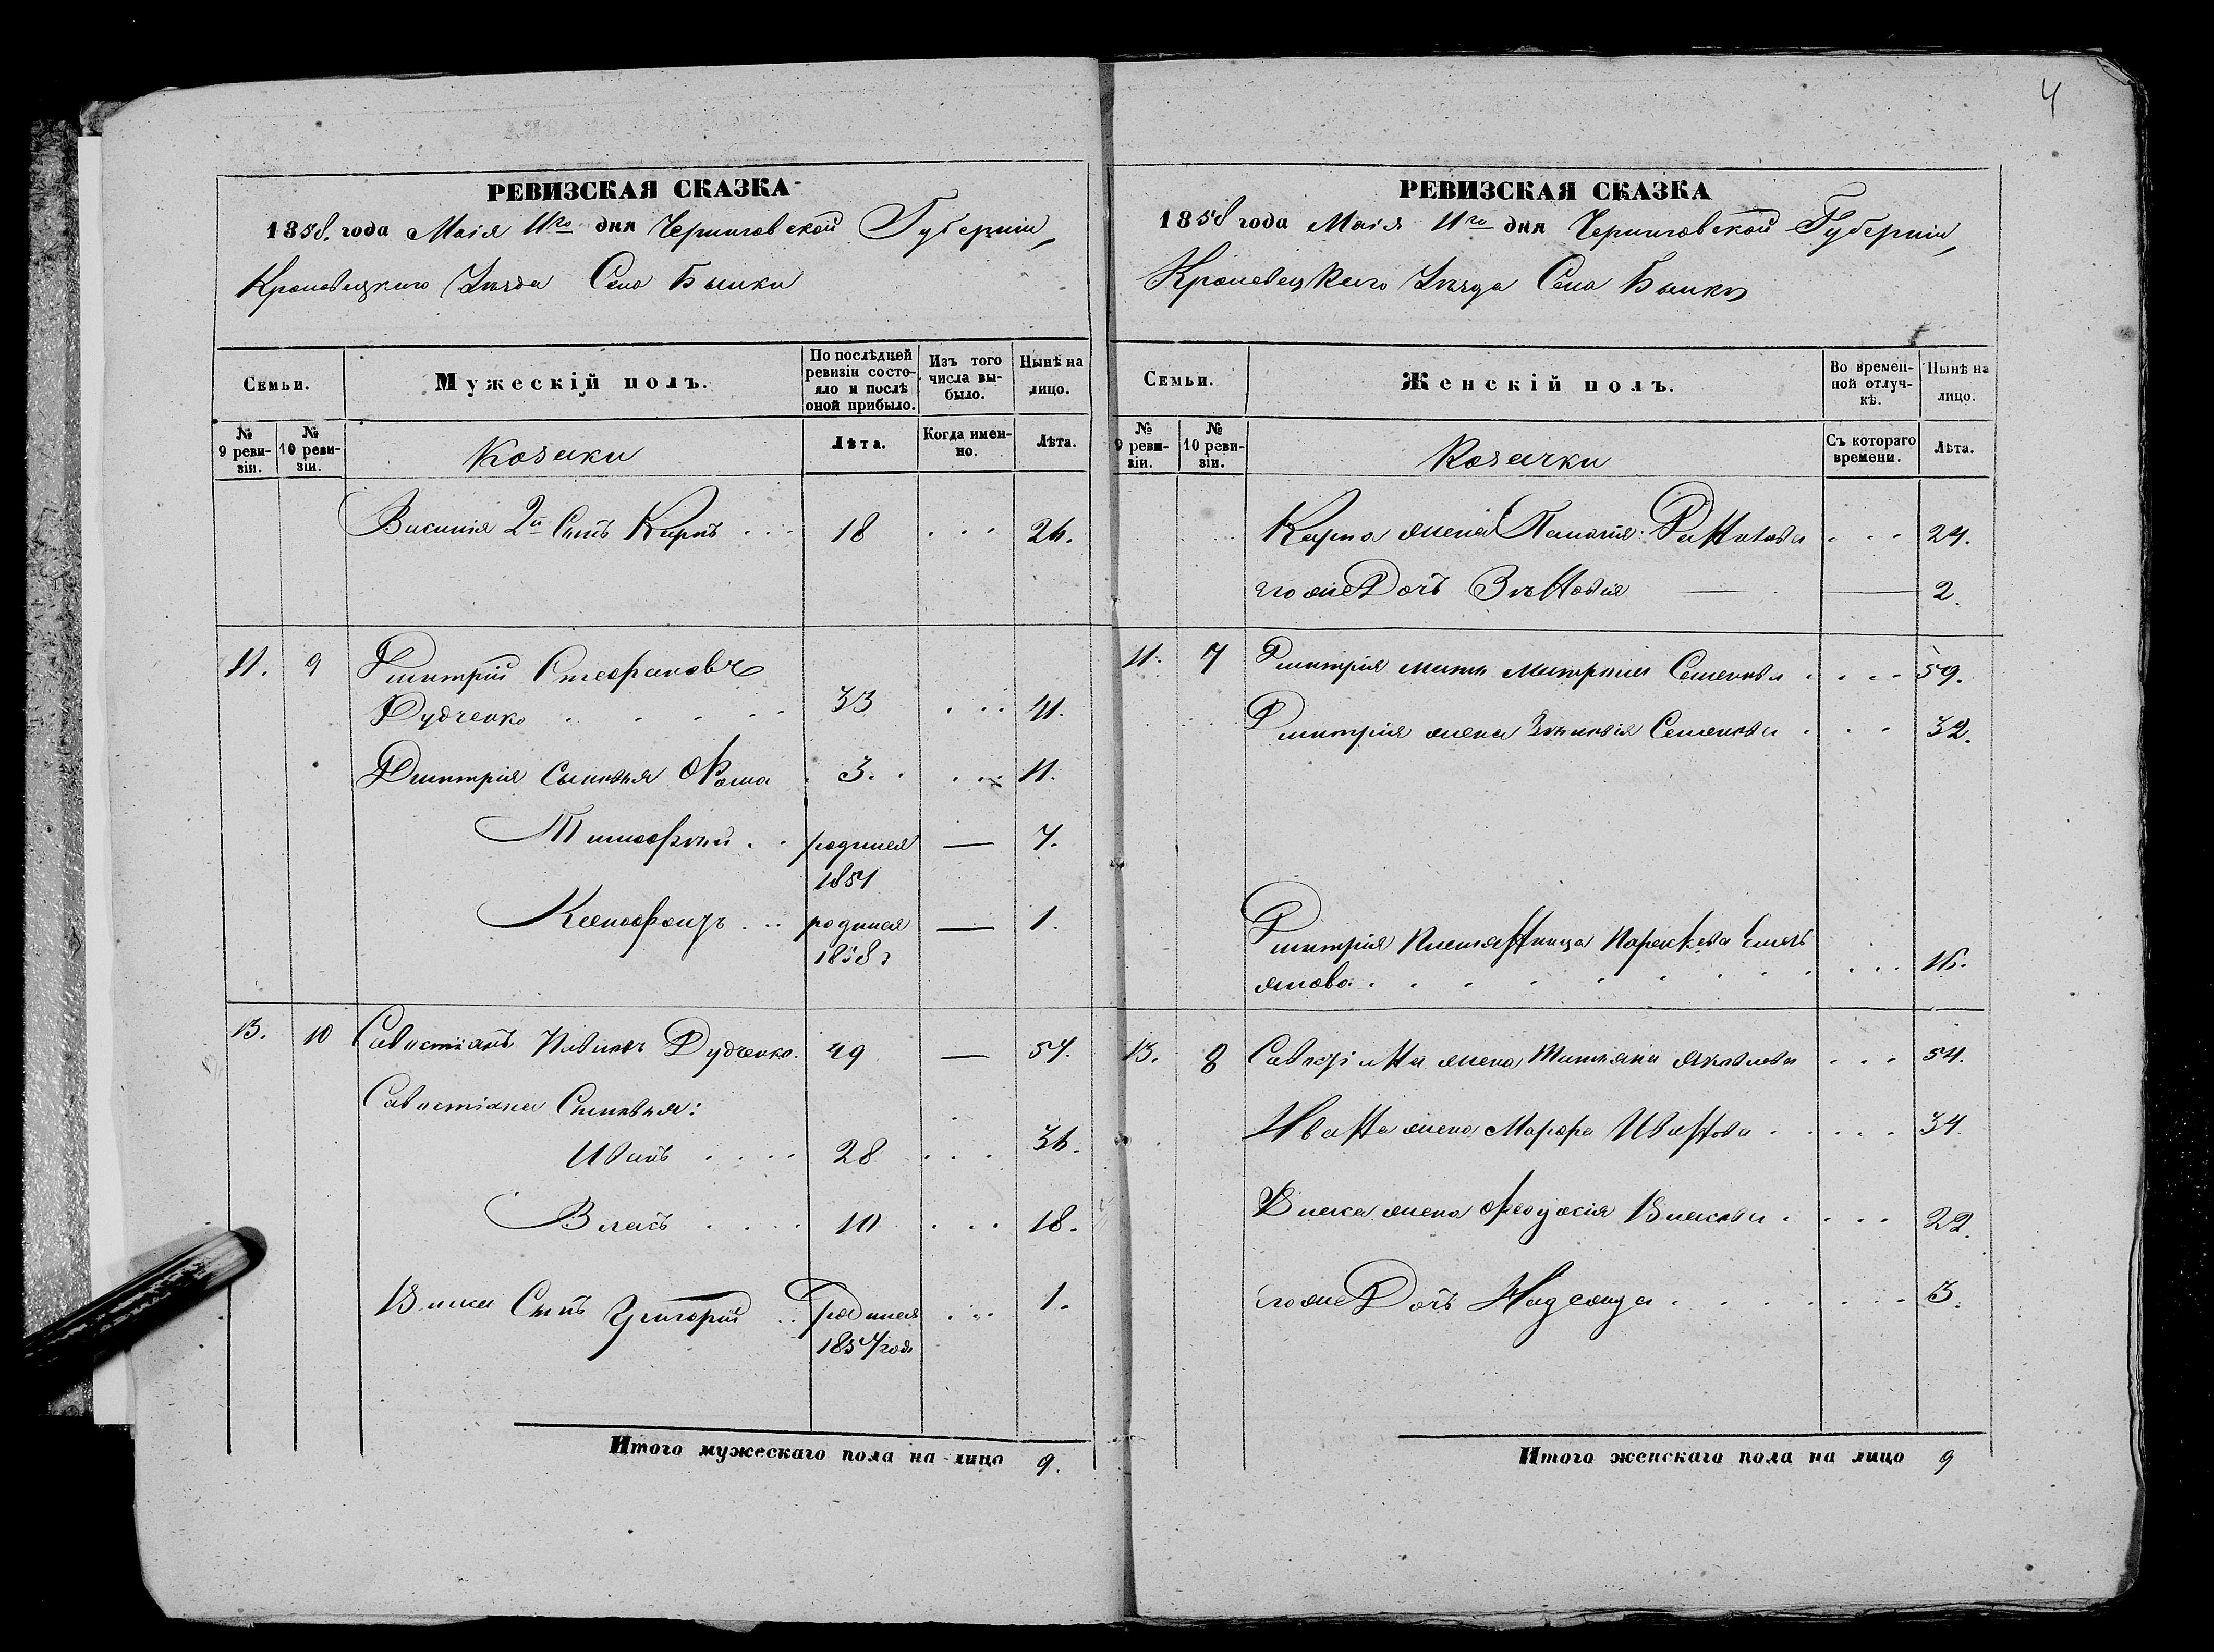 РЕВИЗСКАЯ СКАЗКА
1858. года Маія 11го дня Черниговской Губерніи,
Кролевецкаго Уѣзда Села Быики
Семьи.
Мужескій полъ.
По послѣдней ревизіи состояло и послѣ оной прибыло.
Изъ того числа выбыло.
Нынѣ на лицо.
№ 9 ревизіи.
№ 10 ревизіи.
Козаки
Лѣта.
Когда именно.
Лѣта.
Василія 2й Сынъ Карпъ 18 26.
11. 9 Дмитрій Стефановъ
Дудченко 33 41.
Дмитрія сыновья Фома 3. 11.
Тимофѣй родился — 7.
1851
Ксенофонтъ родился — 1.
1858
13. 10 Савостіанъ Павловъ Дудченко. 49 — 57.
Савостіана Сыновья:
Иванъ 28 36.
Власъ 10 18.
Власа Сынъ Григорій родился 1.
1857 год.
Итого мужескаго пола на лицо 9.
4
РЕВИЗСКАЯ СКАЗКА
1858 года Маія 11го дня Черниговской Губерніи,
Кролевецкаго Уѣзда Села Быики
Семьи.
Женскій полъ.
Во временной отлучкѣ.
Нынѣ на лицо.
№ 9 ревизіи.
№ 10 ревизіи.
Козачки
Съ котораго времени.
Лѣта.
Карпа жена 24.
его же Дочь Зѣновія — — 2.
11. 7 Дмитрія мать Матрона Семенова 59.
Дмитрія жена Зѣновія Семенова 32.
Дмитрія племянница Параскева Емель
янова 16.
13. 8 Савостіана жена Татьяна Яковлева 54.
Ивана жена Марфа Иванова 34.
Власа жена Феодосія Власова 22.
его же Дочь 3.
Итого женскаго пола на лицо 9